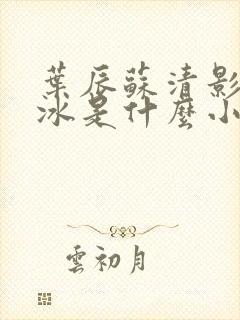 葉辰蘇清影
冰是什麼小
雲初月